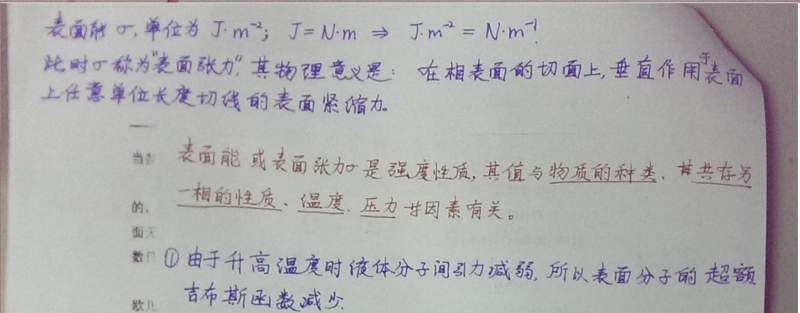 表面能σ,单位为 J·m⁻²; J=N·m ⇒ J·m⁻² = N·m⁻¹.
此时σ称为"表面张力",其物理意义是: 在相表面的切面上,垂直作用于表面
上任意单位长度切线的表面紧缩力。
表面能或表面张力σ是强度性质,其值与物质的种类、共存另
一相的性质、温度、压力等因素有关。
的,
面
数
①由于升高温度时液体分子间引力减弱,所以表面分子的超额
吉布斯函数减少.
欧